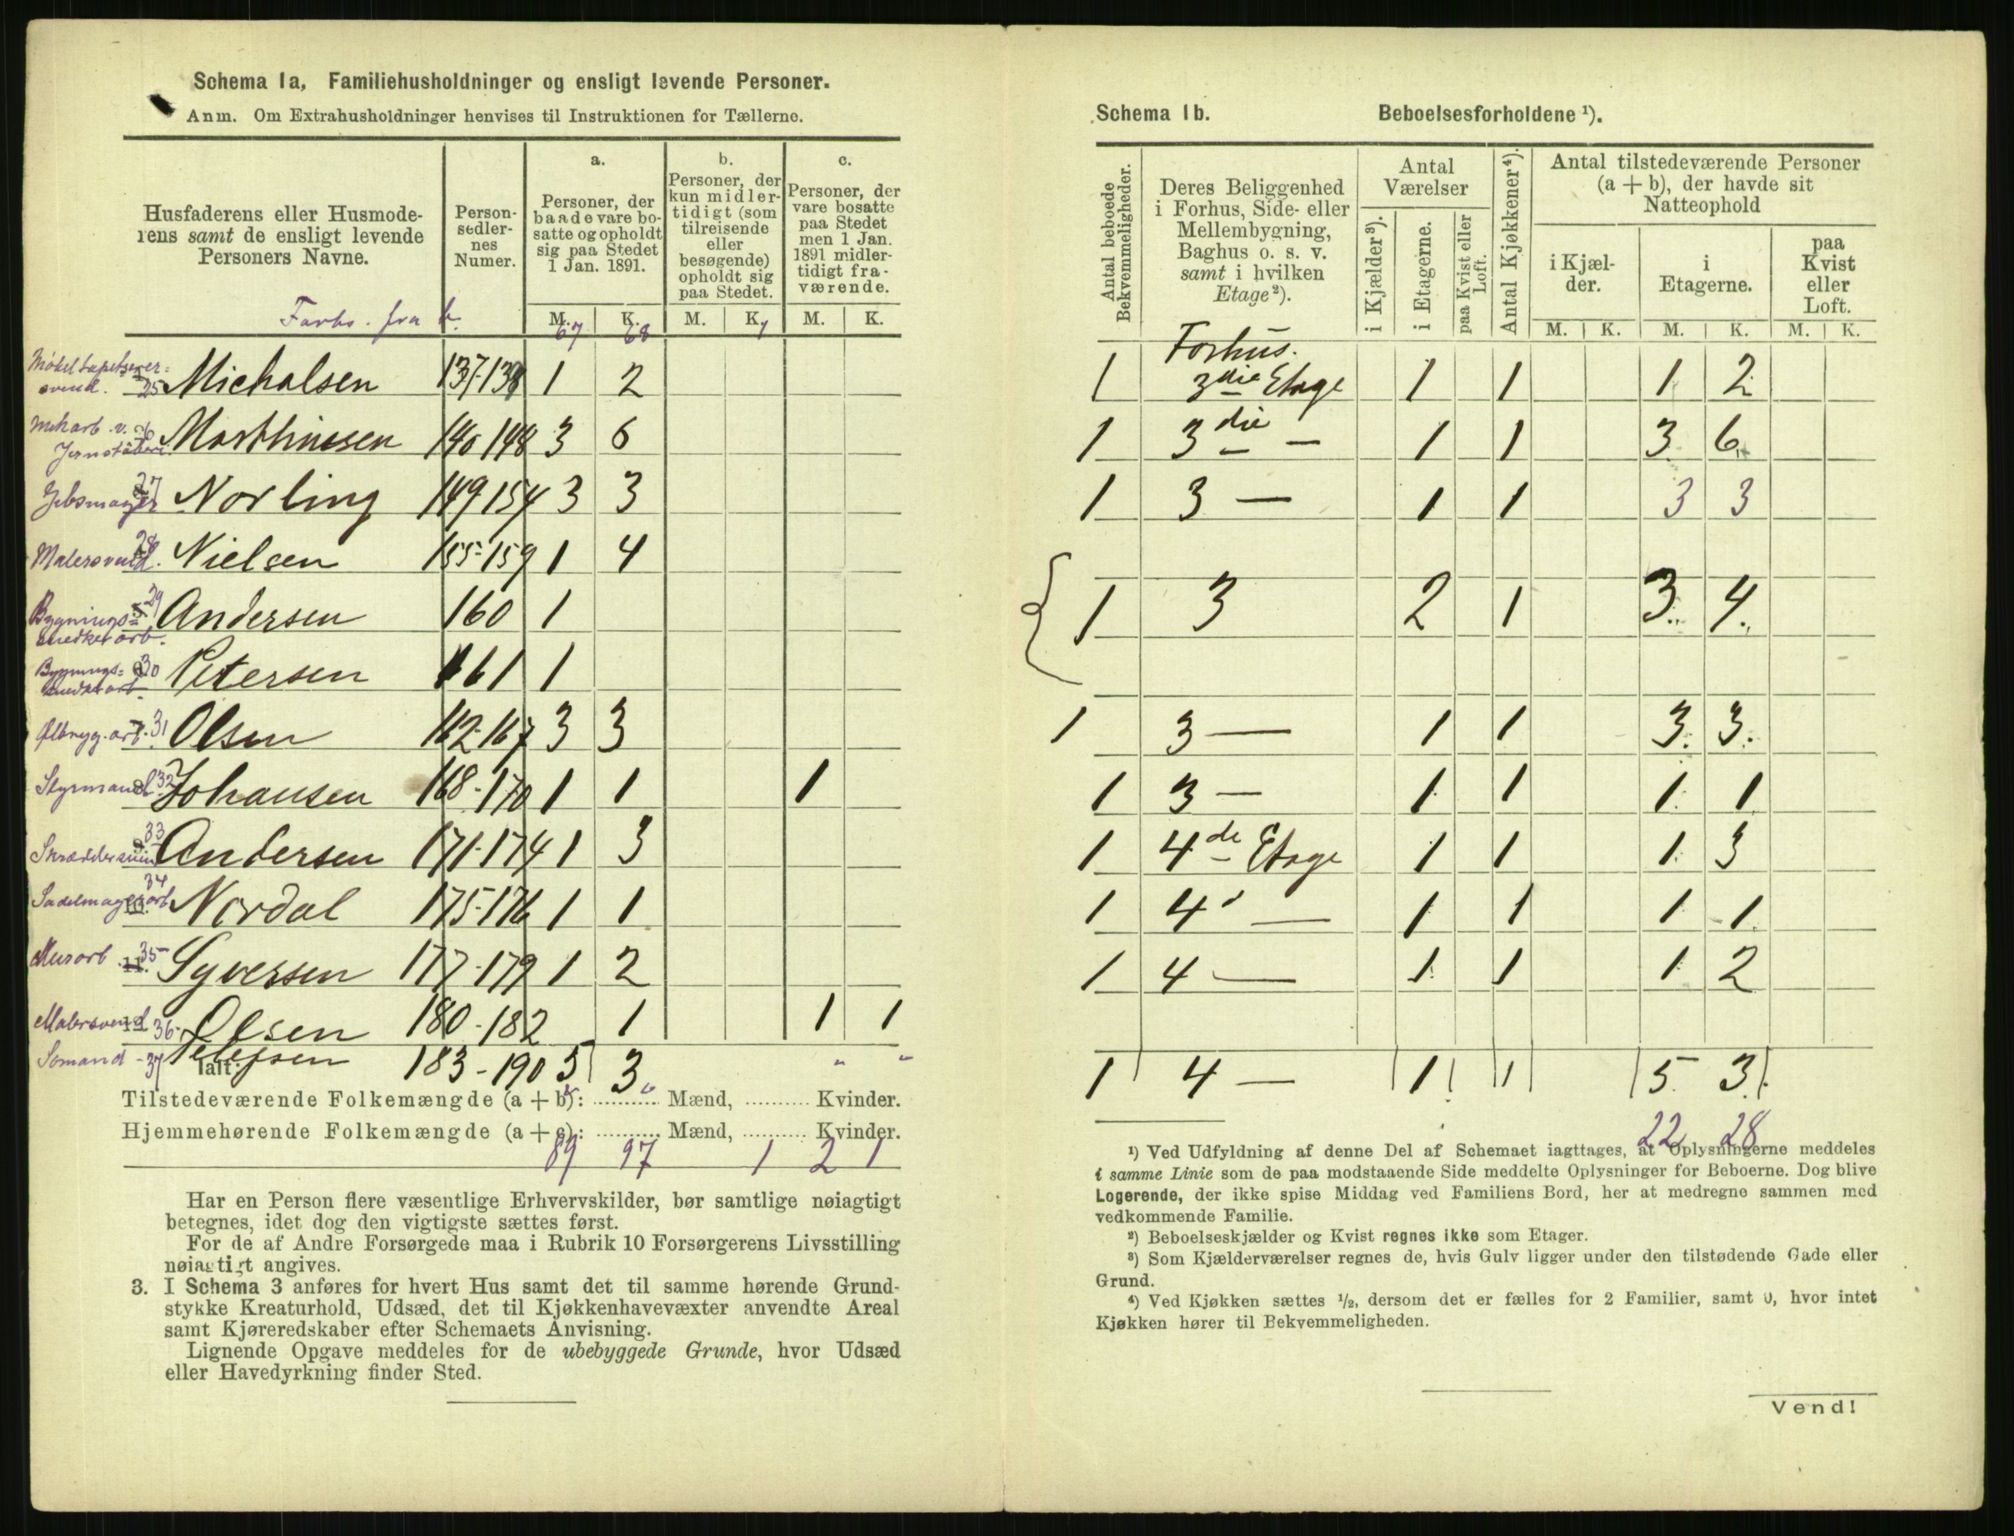 Schema 1a, Familiehusholdninger og ensligt levende Personer.
Anm. Om Extrahusholdninger henvises til Instruktionen for Tællerne.
Husfaderens eller Husmoderens samt de ensligt levende Personers Navne.
Personsedlernes Numer.
a. Personer, der baade vare bosatte og opholdt sig paa Stedet 1 Jan. 1891.
b. Personer, der kun midlertidigt (som tilreisende eller besøgende) opholdt sig paa Stedet.
c. Personer, der vare bosatte paa Stedet men 1 Jan. 1891 midlertidigt fraværende.
M. K. M. K. M. K.
67 68 1
25 Michalsen 137-139 1 2
26 Marthinsen 140 148 3 6
27 Norling 149 154 3 3
Malersvend. 28 Nielsen 155-159 1 4
Bygningssnedker arb. 29 Andersen 160 1
30 Petersen 161 1
Ølbryg. arb. 31 Olsen 162-167 3 3
Styrmand 32 Johansen 168-170 1 1 1
33 Andersen 171-174 1 3
Sadelmager arb 34 Nordal 175-176 1 1
Murarb. 35 Syversen 177-179 1 2
Malersvend 36 Olsen 180-182 1 1 1
Sömand - 37 183-190 5 3 " "
Ialt:
Tilstedeværende Folkemængde (a + b): ........... Mænd, ........... Kvinder.
Hjemmehørende Folkemængde (a + c): ........... Mænd, ........... Kvinder.
89 97 1 2 1
Har en Person flere væsentlige Erhvervskilder, bør samtlige nøiagtigt
betegnes, idet dog den vigtigste sættes først.
For de af Andre Forsørgede maa i Rubrik 10 Forsørgerens Livsstilling
nøiagtigt angives.
3. I Schema 3 anføres for hvert Hus samt det til samme hørende Grund-
stykke Kreaturhold, Udsæd, det til Kjøkkenhavevæxter anvendte Areal
samt Kjøreredskaber efter Schemaets Anvisning.
Lignende Opgave meddeles for de ubebyggede Grunde, hvor Udsæd
eller Havedyrkning finder Sted.
Schema 1b. Beboelsesforholdene ¹).
Antal beboede Bekvemmeligheder.
Deres Beliggenhed i Forhus, Side- eller Mellembygning, Baghus o. s. v. samt i hvilken Etage²).
Antal Værelser
i Kjælder³).
i Etagerne.
paa Kvist eller Loft.
Antal Kjøkkener⁴).
Antal tilstedeværende Personer (a + b), der havde sit Natteophold
i Kjælder.
i Etagerne.
paa Kvist eller Loft.
M. K. M. K. M. K.
Forhus.
1 3die Etage 1 1 1 2
1 3die — 1 1 3 6
1 3 — 1 1 3 3
1 3 2 1 3 4
1 3 — 1 1 3 3
1 3 — 1 1 1 1
1 4de Etage 1 1 1 3
1 4 — 1 1 1 1
1 4 — 1 1 1 2
1 4 — 1 1 5 3
22 28
¹) Ved Udfyldning af denne Del af Schemaet iagttages, at Oplysningerne meddeles
i samme Linie som de paa modstaaende Side meddelte Oplysninger for Beboerne. Dog blive
Logerende, der ikke spise Middag ved Familiens Bord, her at medregne sammen med
vedkommende Familie.
²) Beboelseskjælder og Kvist regnes ikke som Etager.
³) Som Kjælderværelser regnes de, hvis Gulv ligger under den tilstødende Gade eller
Grund.
⁴) Ved Kjøkken sættes ½, dersom det er fælles for 2 Familier, samt 0, hvor intet
Kjøkken hører til Bekvemmeligheden.
Vend!